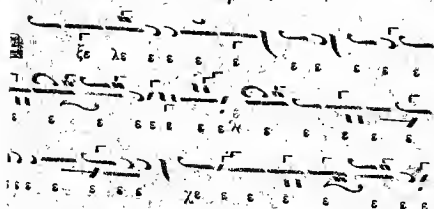 ξε λε ε ε ε ε ε ε ε ε
ε ε ε ε ε ε ε ε ε ε ε ε ε
ε ε ε ε ε ε ε ε χε ε ε ε ε ε ε ε